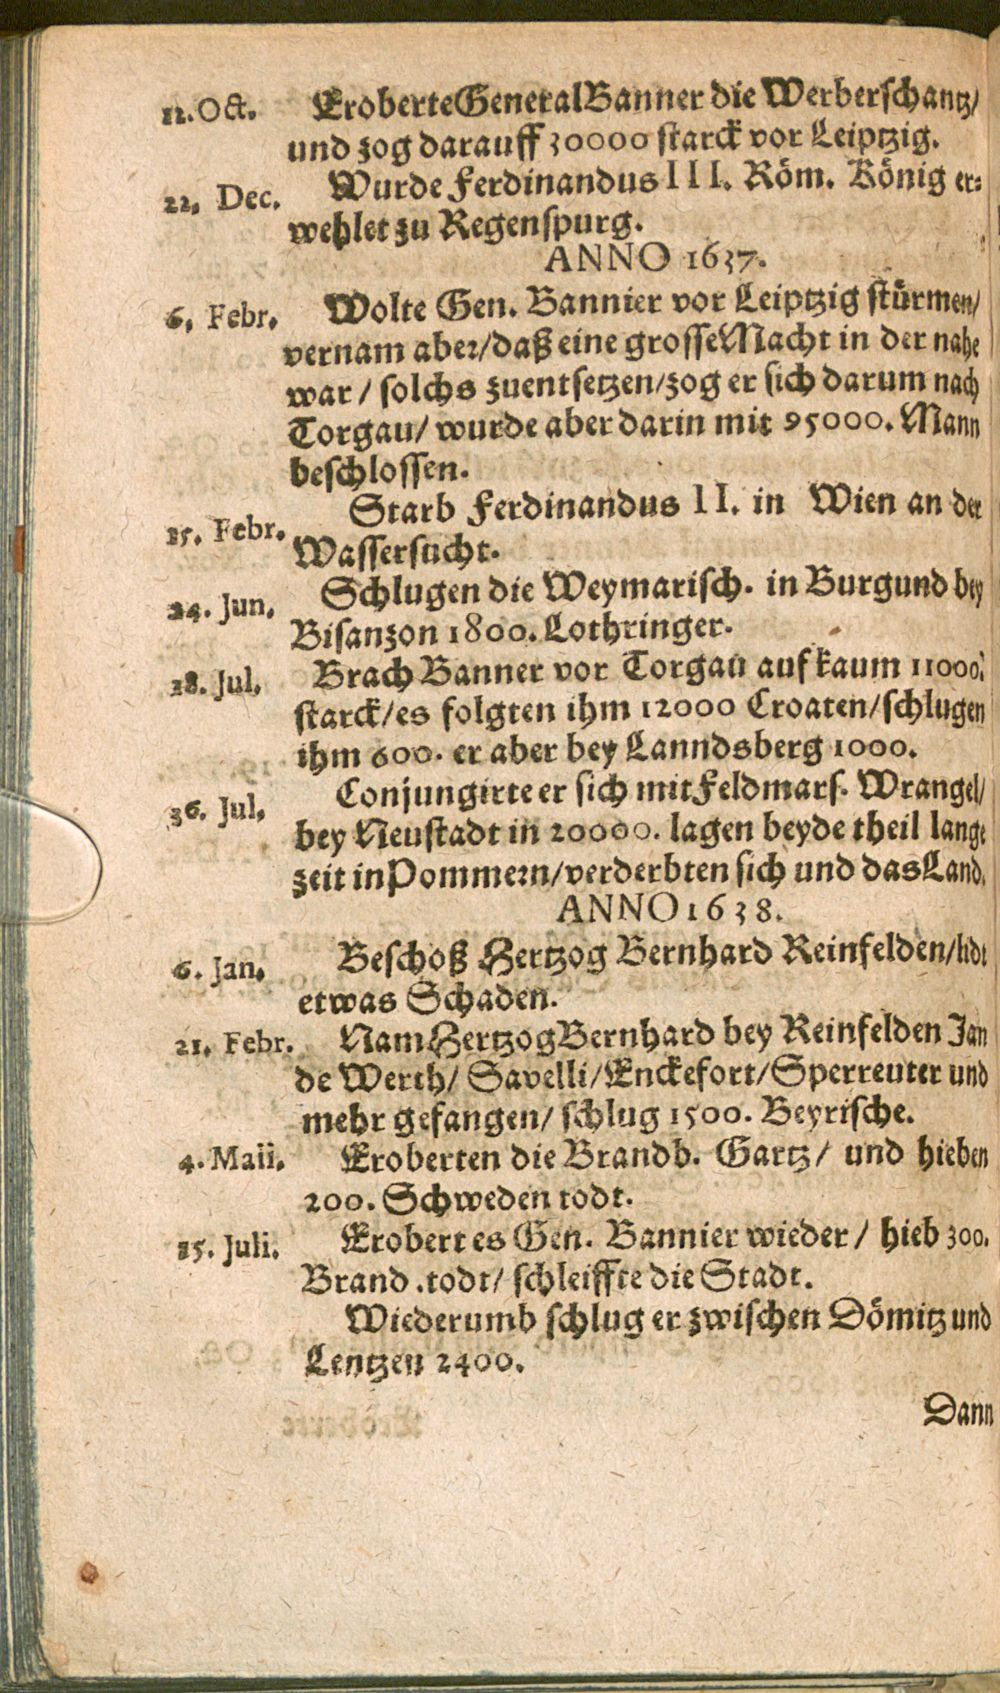 12. Oct. Eroberte General Banner die Werberschantz/
und zog darauff 30000 starck vor Leiptzig.
22. Dec. Wurde Ferdinandus III. Röm. König er-
wehlet zu Regenspurg.
ANNO 1637.
6. Febr. Wolte Gen. Bannier vor Leiptzig stürmen/
vernam aber/ daß eine grosse Macht in der nahe
war / solchs zuentsetzen/ zog er sich darum nach
Torgau/ wurde aber darin mit 95000. Mann
beschlossen.
15. Febr. Starb Ferdinandus II. in Wien an der
Wassersucht.
24. Jun. Schlugen die Weymarisch. in Burgund bey
Bisanzon 1800. Lothringer.
18. Jul. Brach Banner vor Torgau auf kaum 11000.
starck/ es folgten ihm 12000 Croaten/ schlugen
ihm 600. er aber bey Lanndsberg 1000.
36. Jul. Conjungirte er sich mit Feldmars. Wrangel/
bey Neustadt in 20000. lagen beyde theil lange
zeit in Pommern/ verderbten sich und das Land.
ANNO 1638.
6. Jan. Beschoß Hertzog Bernhard Reinfelden/ lidt
etwas Schaden.
21. Febr. Nam Hertzog Bernhard bey Reinfelden Jan
de Werth/ Savelli/ Enckefort/ Sperreuter und
mehr gefangen/ schlug 1500. Beyrische.
4. Maii. Eroberten die Brandb. Gartz/ und hieben
200. Schweden todt.
15. Juli. Erobert es Gen. Bannier wieder / hieb 300.
Brand. todt/ schleiffte die Stadt.
Wiederumb schlug er zwischen Dömitz und
Lentzen 2400.
Dann